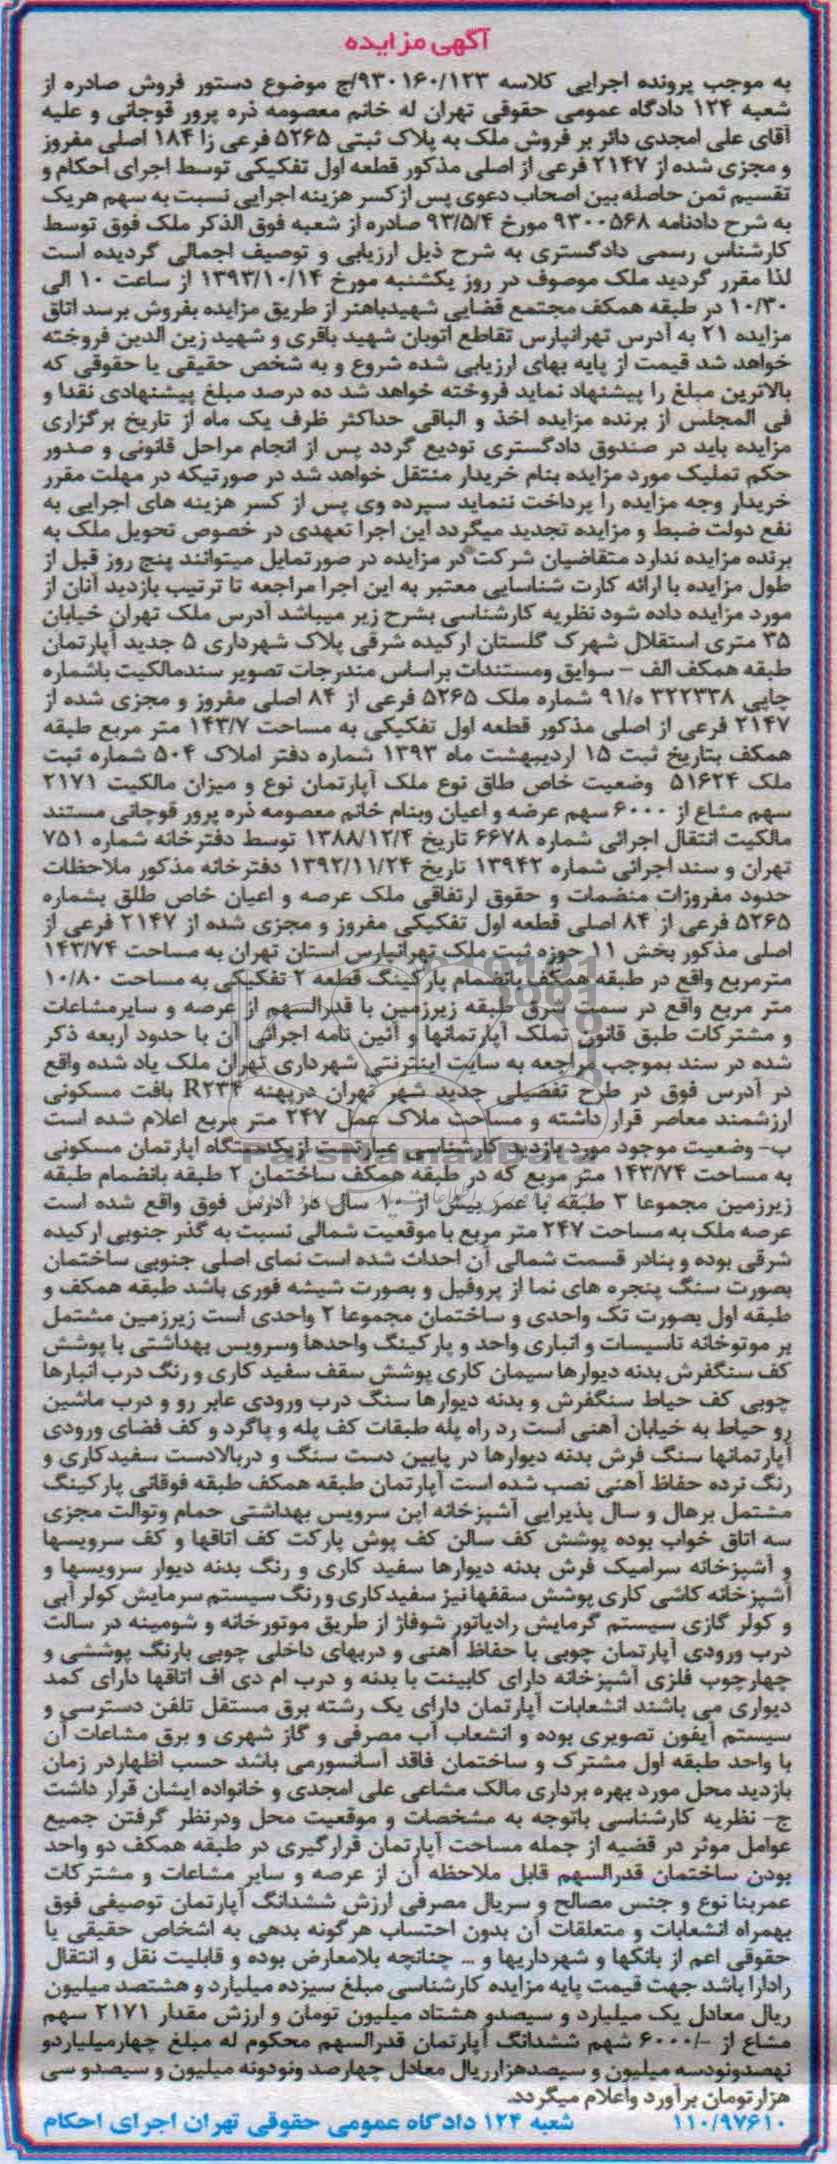 آگهی مزایده
به موجب پرونده اجرایی کلاسه ۹۳۰۱۶۰/۱۲۳/ج موضوع دستور فروش صادره از
شعبه ۱۲۴ دادگاه عمومی حقوقی تهران له خانم معصومه ذره پرور قوچانی و علیه
آقای علی امجدی دائر بر فروش ملک به پلاک ثبتی ۵۲۶۵ فرعی زا ۱۸۴ اصلی مفروز
و مجزی شده از ۲۱۴۷ فرعی از اصلی مذکور قطعه اول تفکیکی توسط اجرای احکام و
تقسیم ثمن حاصله بین اصحاب دعوی پس از کسر هزینه اجرایی نسبت به سهم هریک
به شرح دادنامه ۹۳۰۰۵۶۸ مورخ ۹۳/۵/۴ صادره از شعبه فوق الذکر ملک فوق توسط
کارشناس رسمی دادگستری به شرح ذیل ارزیابی و توصیف اجمالی گردیده است
لذا مقرر گردید ملک موصوف در روز یکشنبه مورخ ۱۳۹۳/۱۰/۱۴ از ساعت ۱۰ الی
۱۰/۳۰ در طبقه همکف مجتمع قضایی شهیدباهنر از طریق مزایده بفروش برسد اتاق
مزایده ۲۱ به آدرس تهرانپارس تقاطع اتوبان شهید باقری و شهید زین الدین فروخته
خواهد شد قیمت از پایه بهای ارزیابی شده شروع و به شخص حقیقی یا حقوقی که
بالاترین مبلغ را پیشنهاد نماید فروخته خواهد شد ده درصد مبلغ پیشنهادی نقدا و
فی المجلس از برنده مزایده اخذ و الباقی حداکثر ظرف یک ماه از تاریخ برگزاری
مزایده باید در صندوق دادگستری تودیع گردد پس از انجام مراحل قانونی و صدور
حکم تملیک مورد مزایده بنام خریدار منتقل خواهد شد در صورتیکه در مهلت مقرر
خریدار وجه مزایده را پرداخت ننماید سپرده وی پس از کسر هزینه های اجرایی به
نفع دولت ضبط و مزایده تجدید میگردد این اجرا تعهدی در خصوص تحویل ملک به
برنده مزایده ندارد متقاضیان شرکت در مزایده در صورتمایل میتوانند پنج روز قبل از
طول مزایده با ارائه کارت شناسایی معتبر به این اجرا مراجعه تا ترتیب بازدید آنان از
مورد مزایده داده شود نظریه کارشناسی بشرح زیر میباشد آدرس ملک تهران خیابان
۳۵ متری استقلال شهرک گلستان ارکیده شرقی پلاک شهرداری ۵ جدید آپارتمان
طبقه همکف الف - سوابق ومستندات براساس مندرجات تصویر سندمالکیت باشماره
چاپی ۳۲۲۳۳۸ ۹۱/۵ شماره ملک ۵۲۶۵ فرعی از ۸۴ اصلی مفروز و مجزی شده از
۲۱۴۷ فرعی از اصلی مذکور قطعه اول تفکیکی به مساحت ۱۴۳/۷ متر مربع طبقه
همکف بتاریخ ثبت ۱۵ اردیبهشت ماه ۱۳۹۳ شماره دفتر املاک ۵۰۴ شماره ثبت
ملک ۵۱۶۲۴ وضعیت خاص طاق نوع ملک آپارتمان نوع و میزان مالکیت ۲۱۷۱
سهم مشاع از ۶۰۰۰ سهم عرضه و اعیان وبنام خانم معصومه ذره پرور قوچانی مستند
مالکیت انتقال اجرائی شماره ۶۶۷۸ تاریخ ۱۳۸۸/۱۲/۴ توسط دفترخانه شماره ۷۵۱
تهران و سند اجرائی شماره ۱۳۹۴۲ تاریخ ۱۳۹۲/۱۱/۲۴ دفترخانه مذکور ملاحظات
حدود مفروزات منضمات و حقوق ارتفاقی ملک عرصه و اعیان خاص طلق بشماره
۵۲۶۵ فرعی از ۸۴ اصلی قطعه اول تفکیکی مفروز و مجزی شده از ۲۱۴۷ فرعی از
اصلی مذکور بخش ۱۱ حوزه ثبت ملک تهرانپارس استان تهران به مساحت ۱۴۳/۷۴
مترمربع واقع در طبقه همکف بانضمام پارکینگ قطعه ۲ تفکیکی به مساحت ۱۰/۸۰
متر مربع واقع در سمت شرق طبقه زیرزمین با قدرالسهم از عرصه و سایرمشاعات
و مشترکات طبق قانون تملک آپارتمانها و آئین نامه اجرائی آن با حدود اربعه ذکر
شده در سند بموجب مراجعه به سایت اینترنتی شهرداری تهران ملک یاد شده واقع
در آدرس فوق در طرح تفضیلی جدید شهر تهران درپهنه R۲۳۴ بافت مسکونی
ارزشمند معاصر قرار داشته و مساحت ملاک عمل ۲۴۷ متر مربع اعلام شده است
ب- وضعیت موجود مورد بازدید کارشناسی عبارتست ازیکدستگاه اپارتمان مسکونی
به مساحت ۱۴۳/۷۴ متر مربع که در طبقه همکف ساختمان ۲ طبقه بانضمام طبقه
زیرزمین مجموعا ۳ طبقه با عمر بیش از ۱۰ سال در آدرس فوق واقع شده است
عرصه ملک به مساحت ۲۴۷ متر مربع با موقعیت شمالی نسبت به گذر جنوبی ارکیده
شرقی بوده و بنادر قسمت شمالی آن احداث شده است نمای اصلی جنوبی ساختمان
بصورت سنگ پنجره های نما از پروفیل و بصورت شیشه فوری باشد طبقه همکف و
طبقه اول بصورت تک واحدی و ساختمان مجموعا ۲ واحدی است زیرزمین مشتمل
بر موتوخانه تاسیسات و انباری واحد و پارکینگ واحدها وسرویس بهداشتی با پوشش
کف سنگفرش بدنه دیوارها سیمان کاری پوشش سقف سفید کاری و رنگ درب انبارها
چوبی کف حیاط سنگفرش و بدنه دیوارها سنگ درب ورودی عابر رو و درب ماشین
رو حیاط به خیابان آهنی است رد راه پله طبقات کف پله و پاگرد و کف فضای ورودی
آپارتمانها سنگ فرش بدنه دیوارها در پایین دست سنگ و دربالادست سفیدکاری و
رنگ نرده حفاظ آهنی نصب شده است آپارتمان طبقه همکف طبقه فوقانی پارکینگ
مشتمل برهال و سال پذیرایی آشپزخانه ابن سرویس بهداشتی حمام وتوالت مجزی
سه اتاق خواب بوده پوشش کف سالن کف پوش پارکت کف اتاقها و کف سرویسها
و آشپزخانه سرامیک فرش بدنه دیوارها سفید کاری و رنگ بدنه دیوار سرویسها و
آشپزخانه کاشی کاری پوشش سقفها نیز سفیدکاری و رنگ سیستم سرمایش کولر آبی
و کولر گازی سیستم گرمایش رادیاتور شوفاژ از طریق موتورخانه و شومینه در سالت
درب ورودی آپارتمان چوبی با حفاظ آهنی و دربهای داخلی چوبی بارنگ پوششی و
چهارچوب فلزی آشپزخانه دارای کابینت با بدنه و درب ام دی اف اتاقها دارای کمد
دیواری می باشند انشعابات آپارتمان دارای یک رشته برق مستقل تلفن دسترسی و
سیستم آیفون تصویری بوده و انشعاب آب مصرفی و گاز شهری و برق مشاعات آن
با واحد طبقه اول مشترک و ساختمان فاقد آسانسورمی باشد حسب اظهاردر زمان
بازدید محل مورد بهره برداری مالک مشاعی علی امجدی و خانواده ایشان قرار داشت
ج- نظریه کارشناسی باتوجه به مشخصات و موقعیت محل ودرنظر گرفتن جمیع
عوامل موثر در قضیه از جمله مساحت آپارتمان قرارگیری در طبقه همکف دو واحد
بودن ساختمان قدرالسهم قابل ملاحظه آن از عرصه و سایر مشاعات و مشترکات
عمربنا نوع و جنس مصالح و سریال مصرفی ارزش ششدانگ آپارتمان توصیفی فوق
بهمراه انشعابات و متعلقات آن بدون احتساب هرگونه بدهی به اشخاص حقیقی یا
حقوقی اعم از بانکها و شهرداریها و ... چنانچه بلامعارض بوده و قابلیت نقل و انتقال
رادارا باشد جهت قیمت پایه مزایده کارشناسی مبلغ سیزده میلیارد و هشتصد میلیون
ریال معادل یک میلیارد و سیصدو هشتاد میلیون تومان و ارزش مقدار ۲۱۷۱ سهم
مشاع از -/۶۰۰۰ شهم ششدانگ آپارتمان قدرالسهم محکوم له مبلغ چهارمیلیاردو
نهصدونودسه میلیون و سیصدهزارریال معادل چهارصد ونودونه میلیون و سیصدو سی
هزارتومان برآورد واعلام میگردد.
۱۱۰/۹۷۶۱۰ شعبه ۱۲۴ دادگاه عمومی حقوقی تهران اجرای احکام
ParsNamadData